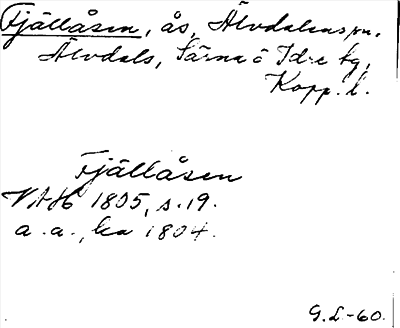 Fjällåsen, ås, Älvdalens sn,
Älvdals, Särna o Idre tg,
Kopp. l.
Fjällåsen
VAH 1805, s. 19.
a. a., ka 1804.
G.L-60.